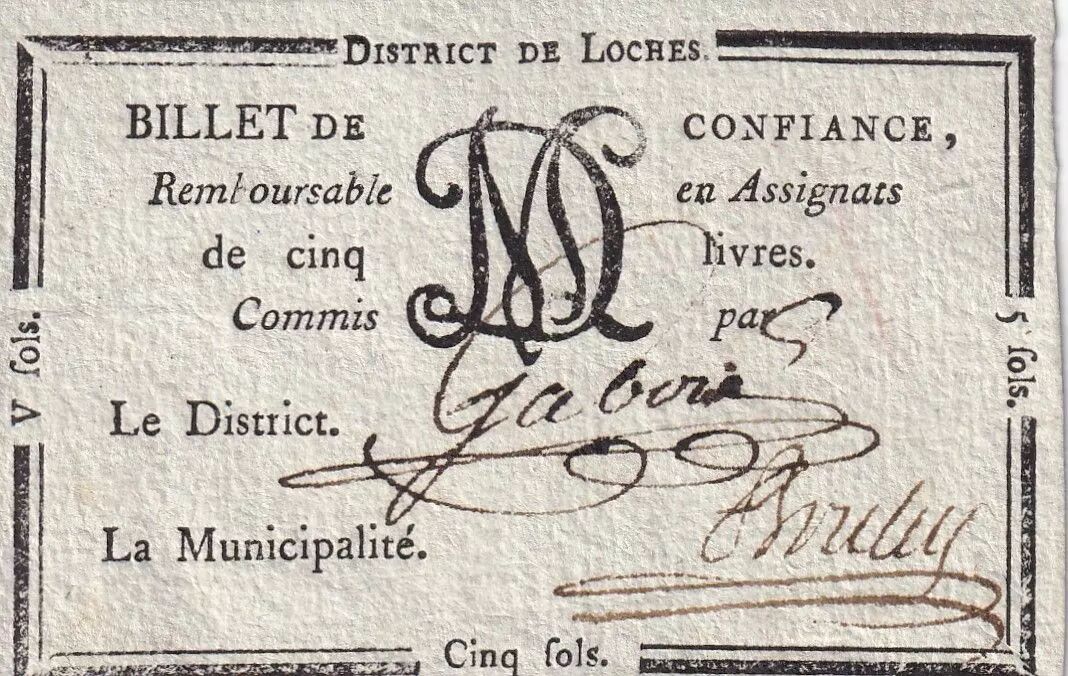 DISTRICT DE LOCHES.
BILLET DE CONFIANCE,
Remboursable en Assignats
de cinq livres.
Commis par
Le District.
La Municipalité.
Cinq ſols.
V ſols.
5 ſols.